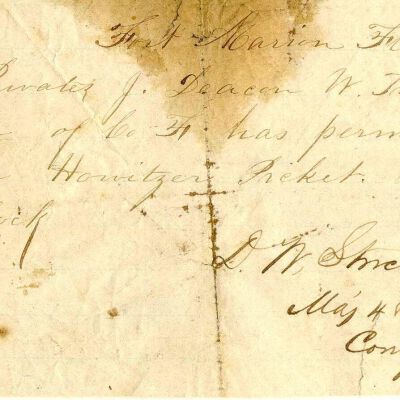 Fort Marion F
Privates J. Deacon W. Th
of Co F has perm
Howitzer Picket.
ock
D. W. Str
Maj 4
Com